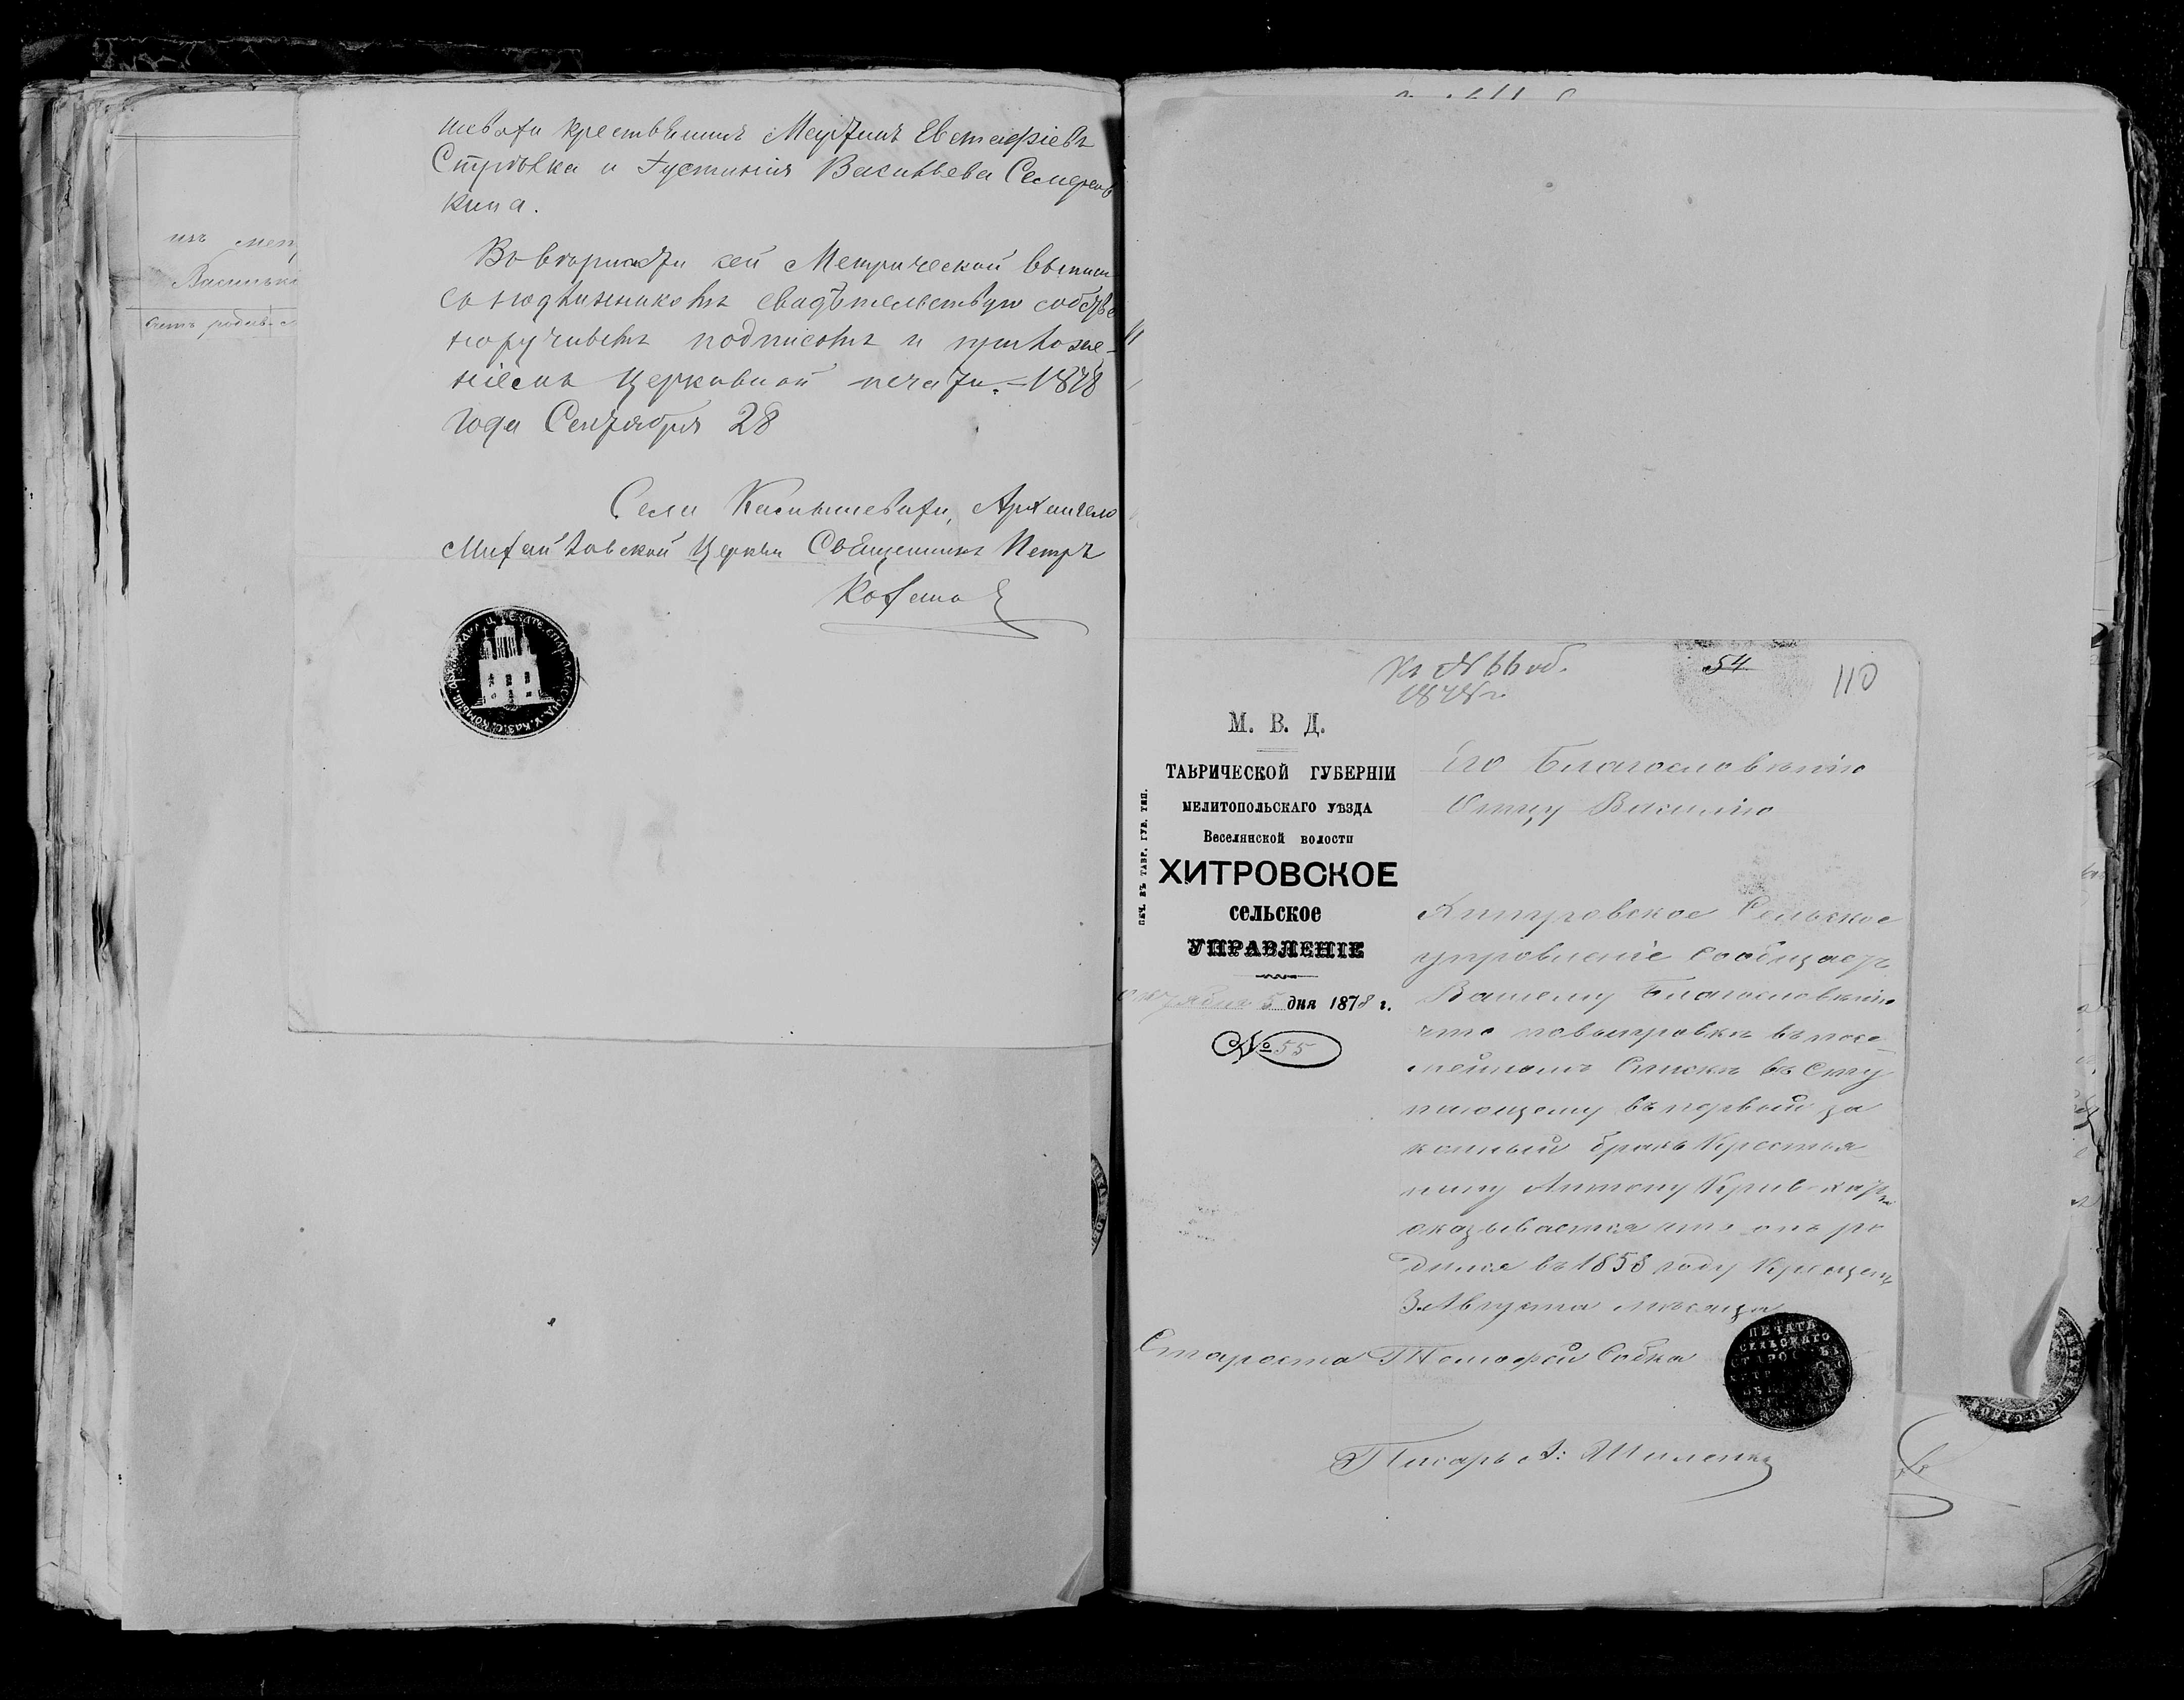 шевати крестьянинъ Мартинъ Евстафіевъ
и Густинія Васильева
кина.
Въ вѣрности сей Метрической выпис
съ подлинникомъ свидѣтельствую собстве
норучнымъ подписомъ и приложе-
ніемъ Церковной печати. – 1878
года Сентября 28
Села Архангело
Михайловской Церкви Священникъ Петръ
изъ мет
Васильк
Къ № 66 об.
1878 г.
54
110
М. В. Д.
ТАВРИЧЕСКОЙ ГУБЕРНІИ
МЕЛИТОПОЛЬСКАГО УѢЗДА
Веселянской волости
ХИТРОВСКОЕ
сельское
УПРАВЛЕНІЕ
Октября 5 дня 1878 г.
№ 55
ПЕЧ. ВЪ ТАВР. ГУБ. ТИП.
Его Благословенію
Отцу Василію
Хитровское Сельское
управленіе сообщаетъ
Вашему Благословенію
что повыправкѣ въ посе-
мейномъ Спискѣ въ Сту
пающему въ первый за
конный бракъ Крестья
нину Антону
оказывается что онъ ро
дился въ 1858 году Крещенъ
3 Августа мѣсяца
Староста Тимофей Собка
Писарь А: Шиленко
ПЕЧАТЬ
СЕЛЬСКАГО
СТАРОСТЫ